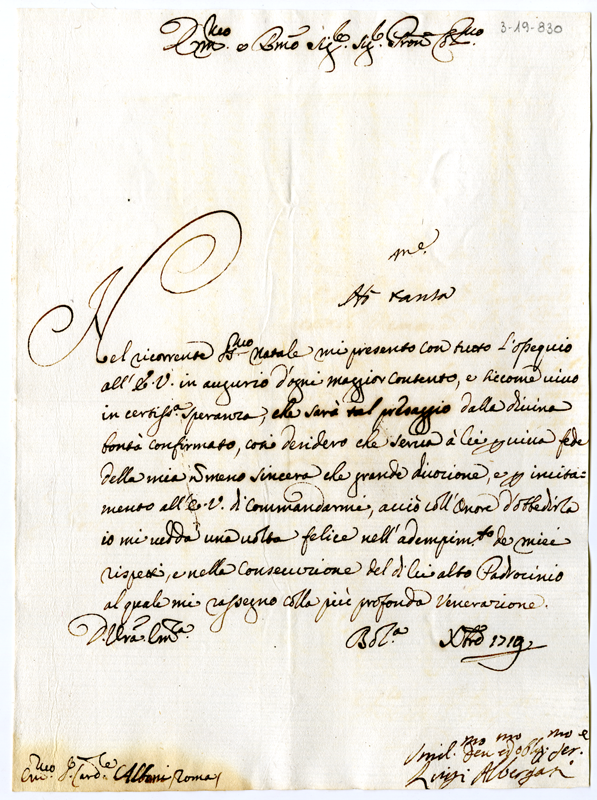 3-19-830
Em.co e Rmo Sig.e Sig.e Pron
me.
Nel ricorrente SSmo Natale mi presento con tutto l'ossequio
all' E. V. in augurio d'ogni maggior contento, e siccome vivo
in certiss.a speranza, che sarà tal presaggio dalla divina
bontà confirmato, così desidero che serva à lei p viva fede
della mia nò meno sincera che grande divozione, e p incita=
mento all' E. V. di commandarmi, acciò coll' Onor d'obbedirla
io mi vedda una volta felice nell' adempim.to de miei
rispetti, e nella Consecuzione del di lei alto Padrocinio
al quale mi rassegno colla più profonda Venerazione.
D. Vra Em.a Bol.a Xbre 1719
Umil.mo Den.mo ed Obl.mo Ser.e
Luigi Albergati
Card.e Albani Roma